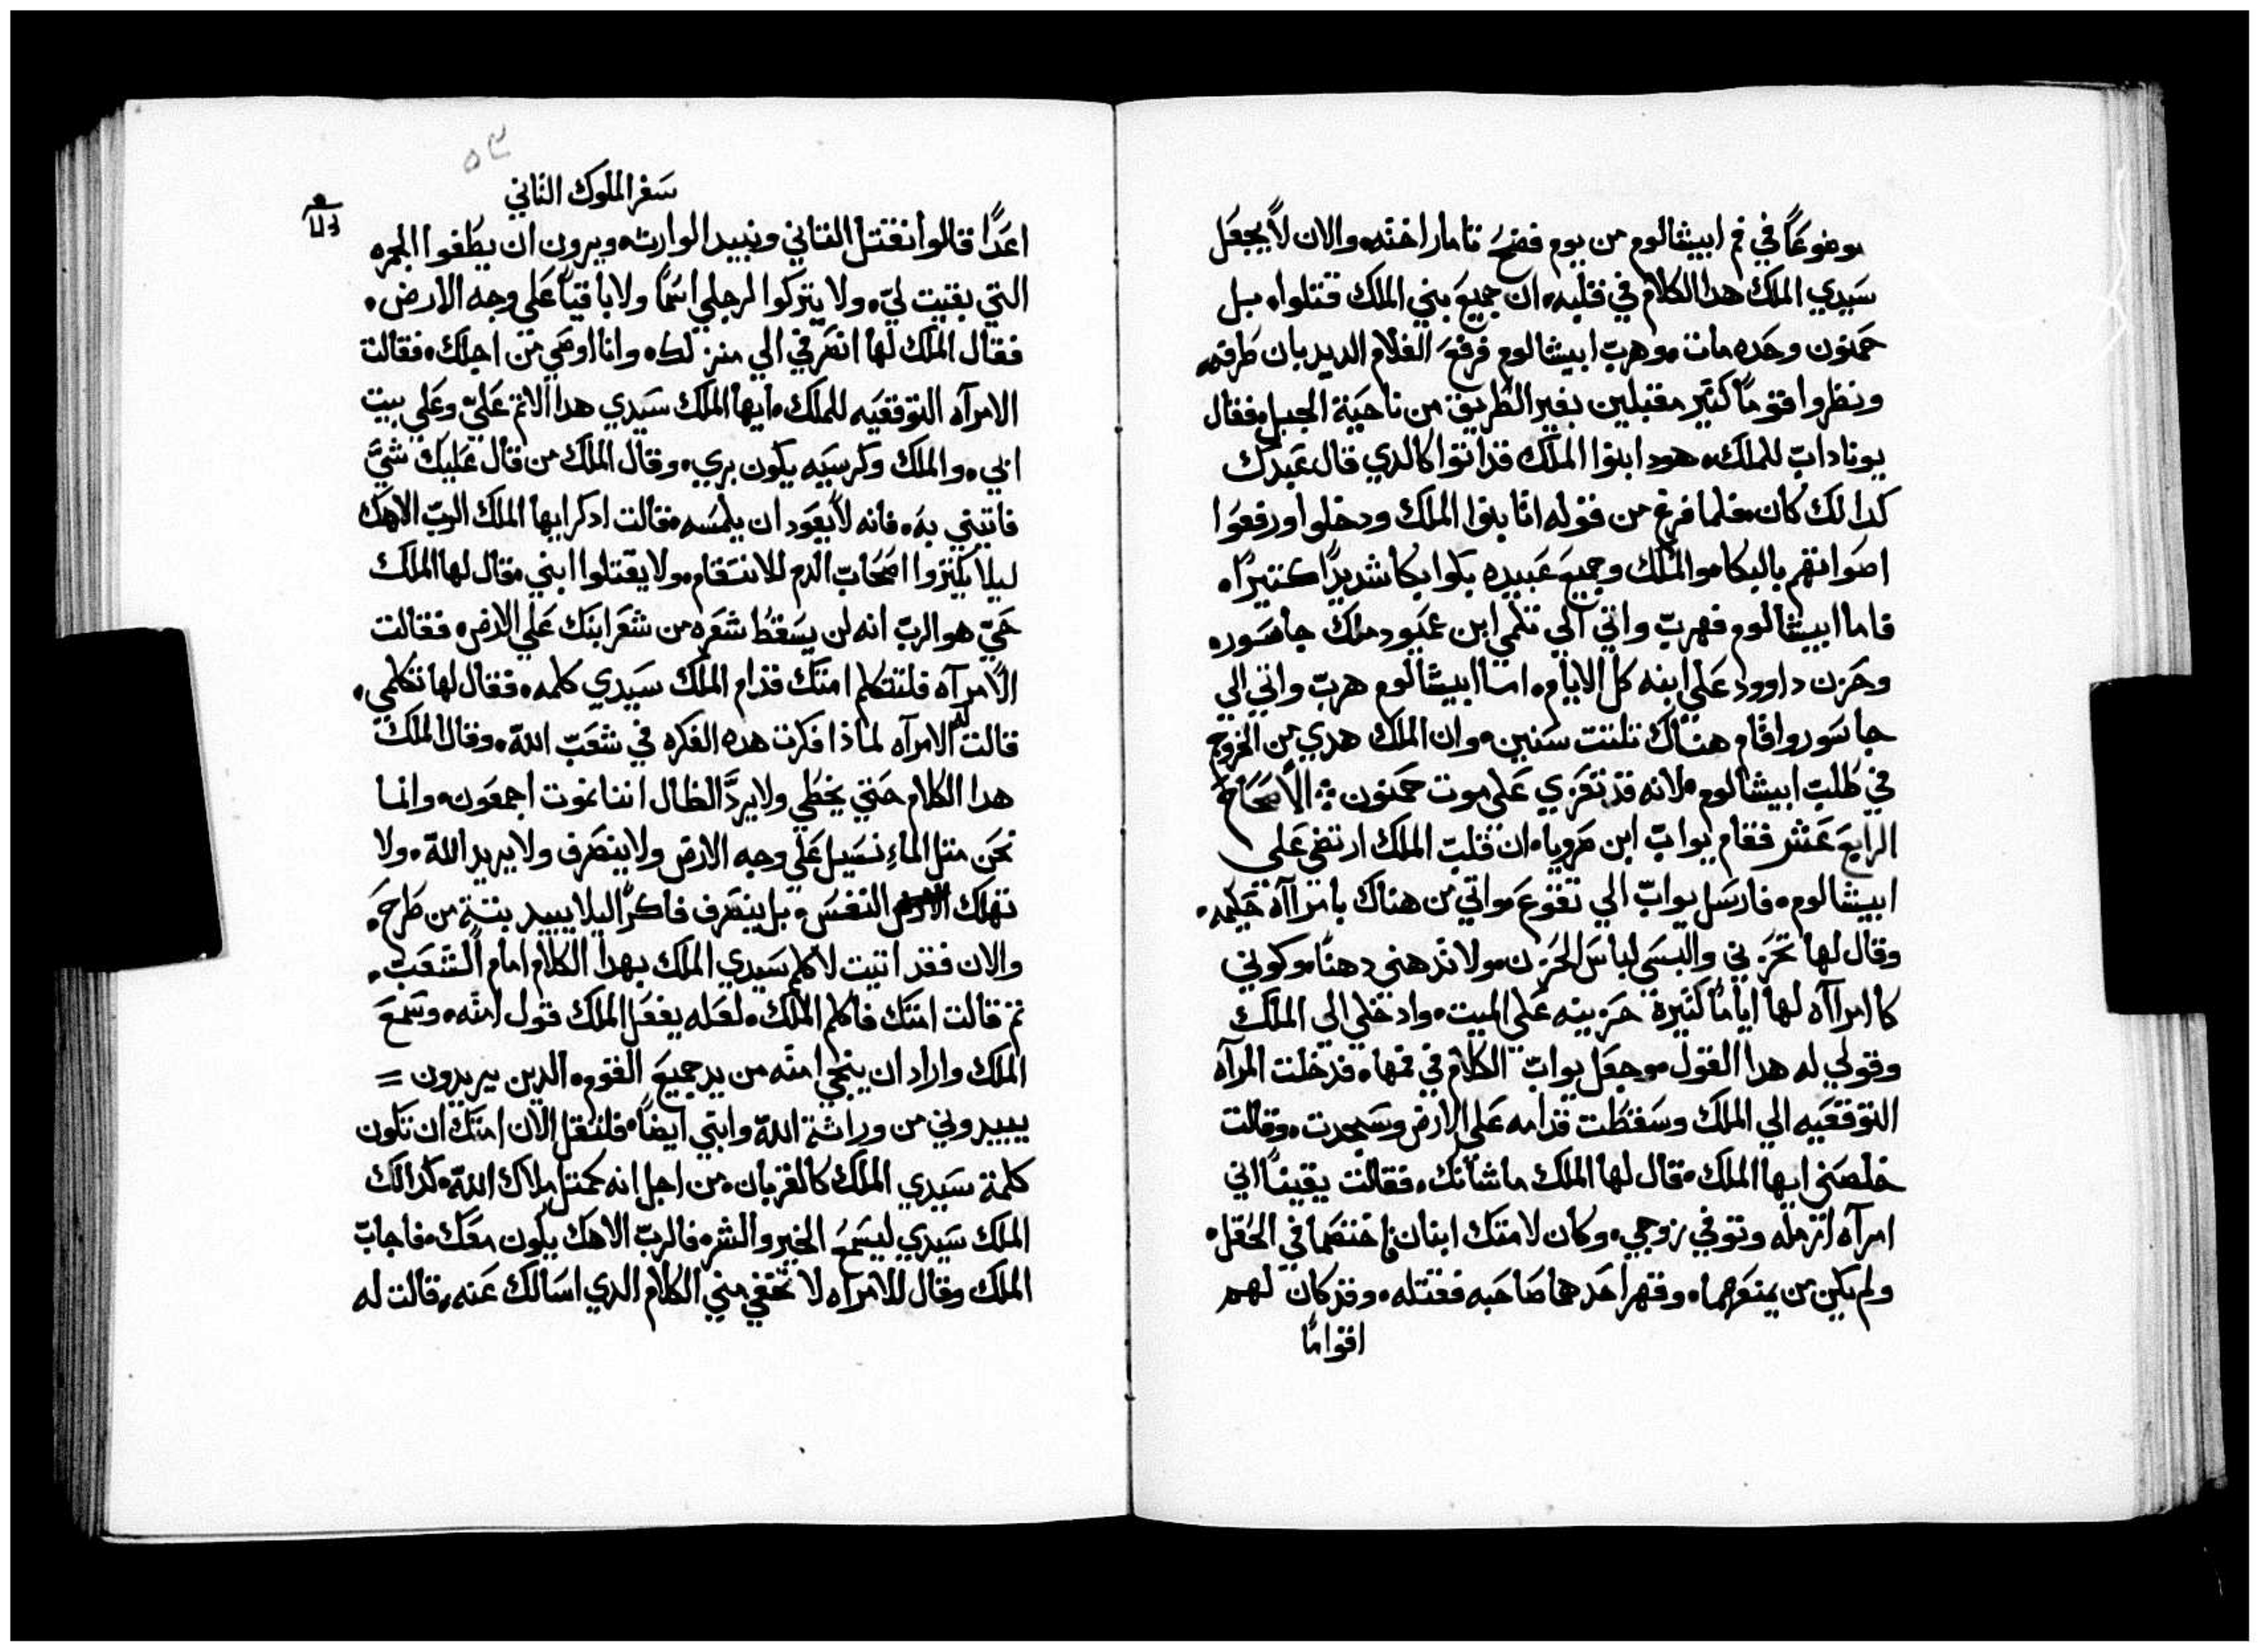 موضوعًا في فم ابيشالوم من يوم فضح تامار اخته. والان لا يجعل
سيدي الملك هدا الكلام في قلبه. ان جميع بني الملك قتلوا. بل
حمنون وحده مات. وهرب ابيشالوم فرفع الغلام الديدبان طرفه
ونظر واقومًا كتير مقبلين بغير الطريق من ناحية الجبل. فقال
يوناداب للملك. هود ابنوا الملك قد اتوا كالدي قال عبدك
كدالك كان. فلما فرغ من قوله اتا بنوا الملك ودخلوا ورفعوا
اصواتهم بالبكا. والملك وجميع عبيده بكوا بكا شديدًا كتيرًا.
فاما ابيشالوم فهرب واتي الي تلمي ابن عميود ملك جاشور.
وحزن داوود علي ابنه كل الايام. اما ابيشالوم هرب واتي الي
جاشور واقام هناك تلتت سنين. وان الملك هدي من الخروج
في طلب ابيشالوم. لانه قد تعزي علي موت حمنون ÷ الاصحاح
الرابع عشر فقام يواب ابن صرويا. ان قلب الملك ارتضي علي
ابيشالوم. فارسل يواب الي تقوع. واتي من هناك بامرااه حكيمه.
وقال لها تحزني والبسي لباس الحزن. ولا تدهني دهنًا. وكوني
كا امرااه لها ايامًا كتيرة حزينه علي الميت. وادخلي الي الملك
وقولي له هدا القول. وجعل يواب الكلام في فمها. فدخلت المرآه
التوقعيه الي الملك وسقطت قدامه علي الارض وسجدت. وقالت
خلصني ايها الملك. قال لها الملك ما شانك. فقالت يقينًا اني
امرآه ارمله وتوفي زوجي. وكان لامتك ابنان فاختصما في الحقل.
ولم يكن من يمنعهما. وقهر احدهما صاحبه فقتله. وقد كان لهم
اقوامًا
٥٣
سفر الملوك التاني
اعدًا قالوا نقتل القاتل ونبيد الوارث. ويرون ان يطفوا الجمره
التي بقيت لي. ولا يتركوا لرجلي اسمًا ولا باقيًا علي وجه الارض.
فقال الملك لها انصرفي الي منزلك. وانا اوصي من اجلك. فقالت
الامرآه التوقعيه للملك. ايها الملك سيدي هدا الاتم علي وعلي بيت
ابي. والملك وكرسيه يكون بري. وقال الملك من قال عليك شيً
فاتيني به. فانه لا يعود ان يلمسه. فقالت ادكر ايها الملك الرب الاهك
ليلا يكتروا اصحاب الدم للانتقام. ولا يقتلوا ابني. فقال لها الملك
حي هو الرب انه لن يسقط شعره من شعر ابنك علي الارض. فقالت
الامرآه فلتتكلم امتك قدام الملك سيدي كلمه. فقال لها تكلمي.
قالت له الامرآه لماذا فكرت هده الفكره في شعب الله. وقال الملك
هدا الكلام حتي يخطي ولا يرد الظال اننا نموت اجمعون. وانما
نحن متل الماء نسيل علي وجه الارض ولا ينصرف ولا يريد الله. ولا
تهلك النفس. بل ينصرف فاكرًا ليلا يبيد بتة من طرح.
والان فقد اتيت لاكلم سيدي الملك بهدا الكلام امام الشعب.
تم قالت امتك فاكلم الملك. لعله يفعل الملك قول امته. وسمع
الملك واراد ان ينجي امته من يد جميع القوم. الدين يريدون =
يبيدوني من وراثة الله وابني ايضًا. فلتقل الان امتك ان تكون
كلمة سيدي الملك كالقربان. من اجل انه كمتل ملاك الله. كدالك
الملك سيدي ليسمع الخير والشر. فالرب الاهك يكون معك. فاجاب
الملك وقال للامراه لا تخفي مني الكلام الدي اسالك عنه. قالت له